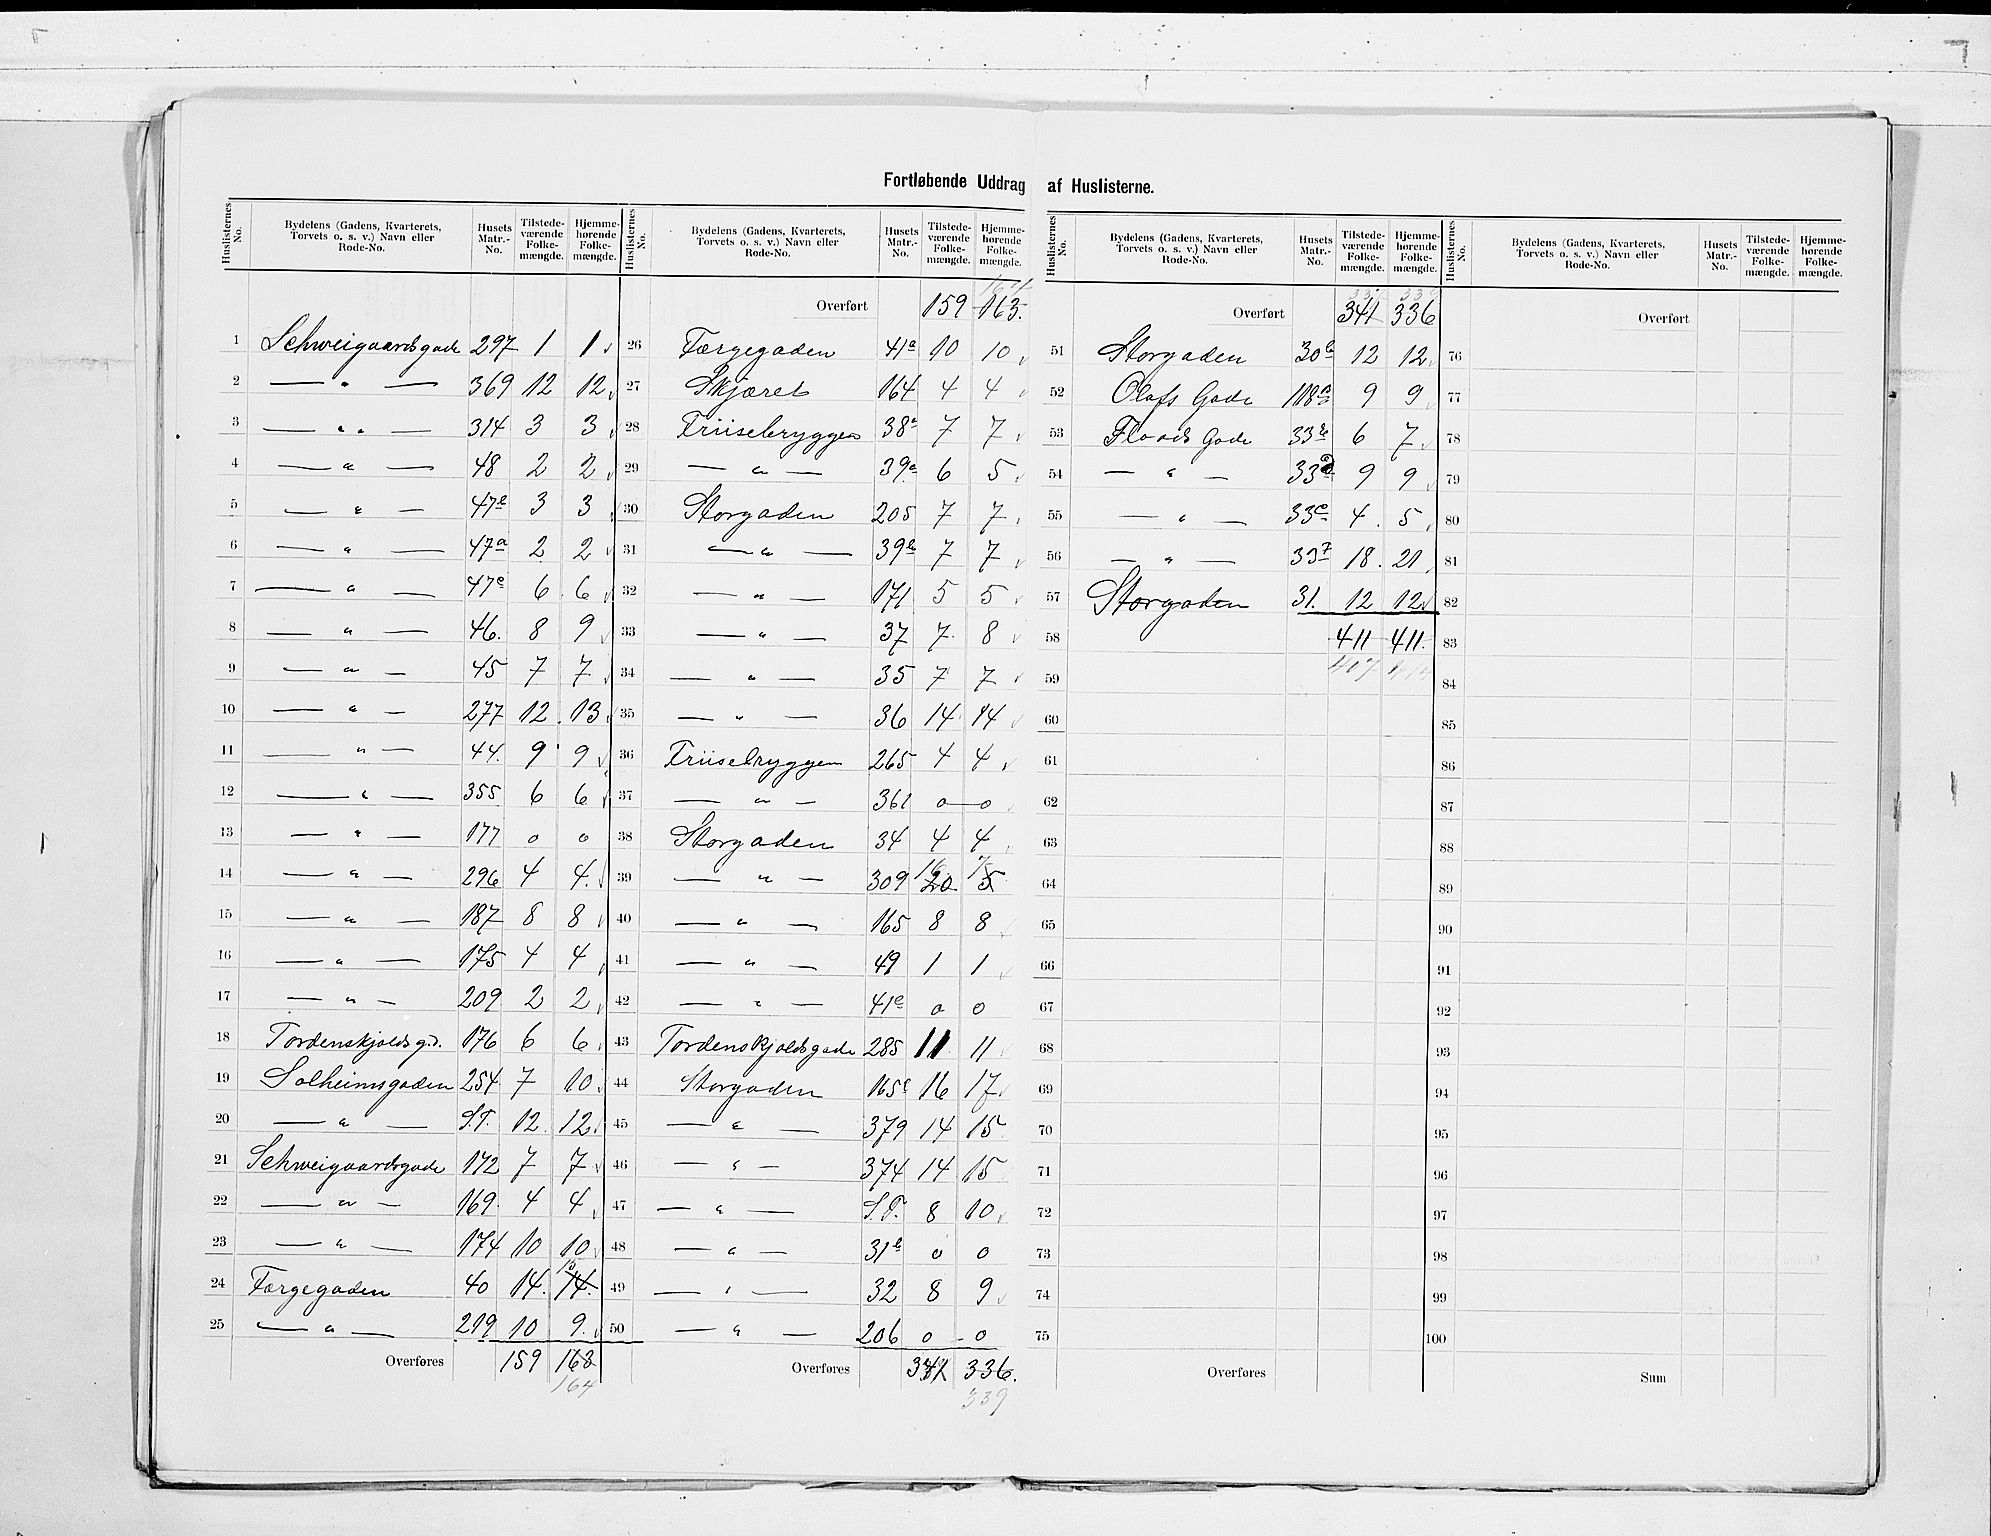 Fortløbende Uddrag af Huslisterne.
Huslisternes No. | Bydelens (Gadens, Kvarterets, Torvets o. s. v.) Navn eller Rode-No. | Husets Matr.-No. | Tilstedeværende Folkemængde. | Hjemmehørende Folkemængde.
1 Schweigaardsgade 297 1 1
2 — " — 369 12 12
3 — " — 314 3 3
4 — " — 48 2 2
5 — " — 47b 3 3
6 — " — 47a 2 2
7 — " — 47c 6 6
8 — " — 46. 8 9
9 — " — 45 7 7
10 — " — 277 12 13
11 — " — 44. 9 9
12 — " — 355 6 6
13 — " — 177 0 0
14 — " — 296 4 4.
15 — " — 187 8 8
16 — " — 175 4 4
17 — " — 209 2 2
18 Tordenskjoldsgd. 176 6 6
19 Solheimsgaden 254 7 10
20 — " — S.T. 12 12
21 Schweigaardsgade 172 7 7
22 — " — 169. 4 4
23 — " — 174 10 10
24 Færgegaden 40 14. 14. 15
25 — " — 219 10 9.
Overføres 159 163
164
Huslisternes No. | Bydelens (Gadens, Kvarterets, Torvets o. s. v.) Navn eller Rode-No. | Husets Matr.-No. | Tilstedeværende Folkemængde. | Hjemmehørende Folkemængde.
164
Overført 159 163.
26 Færgegaden 41a 10 10
27 Skjæret 164 4 4
28 Friisebryggen 38a 7 7
29 — " — 39a 6 5
30 Storgaden 205 7 7
31 — " — 39b 7 7
32 — " — 171 5 5
33 — " — 37 7 8
34 — " — 35 7 7
35 — " — 36 14 14
36 Friisebryggen 265 4 4
37 — " — 361 0 0
38 Storgaden 34 4 4
39 — " — 309 20 16 5
40 — " — 165 8 8
41 — " — 49 1 1
42 — " — 41e 0 0
43 Tordenskjoldsgade 285 11 11
44 Storgaden 165c 16 17
45 — " — 379 14 15
46 — " — 374 14 15
47 — " — S.T. 8 10
48 — " — 31b 0 0
49 — " — 32 8 9
50 — " — 206 0 0
Overføres 341 336.
339
Huslisternes No. | Bydelens (Gadens, Kvarterets, Torvets o. s. v.) Navn eller Rode-No. | Husets Matr.-No. | Tilstedeværende Folkemængde. | Hjemmehørende Folkemængde.
Overført 341 336
51 Storgaden 30b 12 12
52 Olafs Gade 118a 9 9
53 Floods Gade 33b 6 7
54 — " — 33d 9 9
55 — " — 33e 4 5
56 — " — 33f 18 21
57 Storgaden 31. 12 12
58 411 411.
59 407 414
60
61
62
63
64
65
66
67
68
69
70
71
72
73
74
75
Overføres
Huslisternes No. | Bydelens (Gadens, Kvarterets, Torvets o. s. v.) Navn eller Rode-No. | Husets Matr.-No. | Tilstedeværende Folkemængde. | Hjemmehørende Folkemængde.
Overført
76
77
78
79
80
81
82
83
84
85
86
87
88
89
90
91
92
93
94
95
96
97
98
99
100
Sum